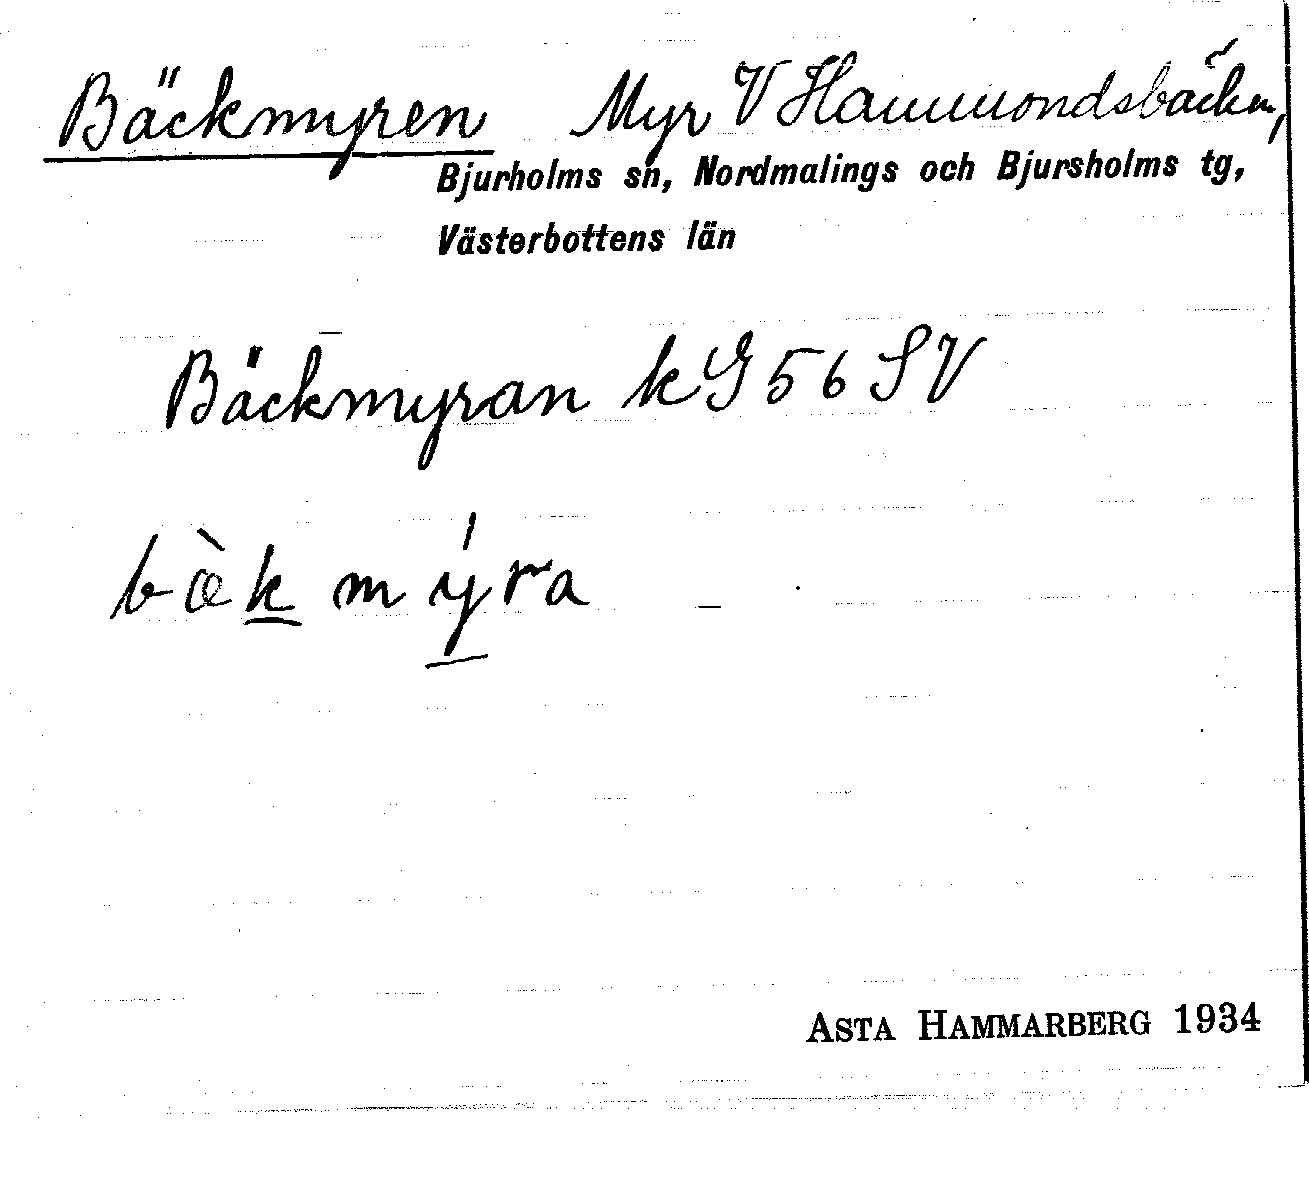 Bäckmyren Myr V Hammondsbäcken,
Bjurholms sn, Nordmalings och Bjursholms tg,
Västerbottens län
Bäckmyran kG 56 SV
bæ̀k mýra
ASTA HAMMARBERG 1934